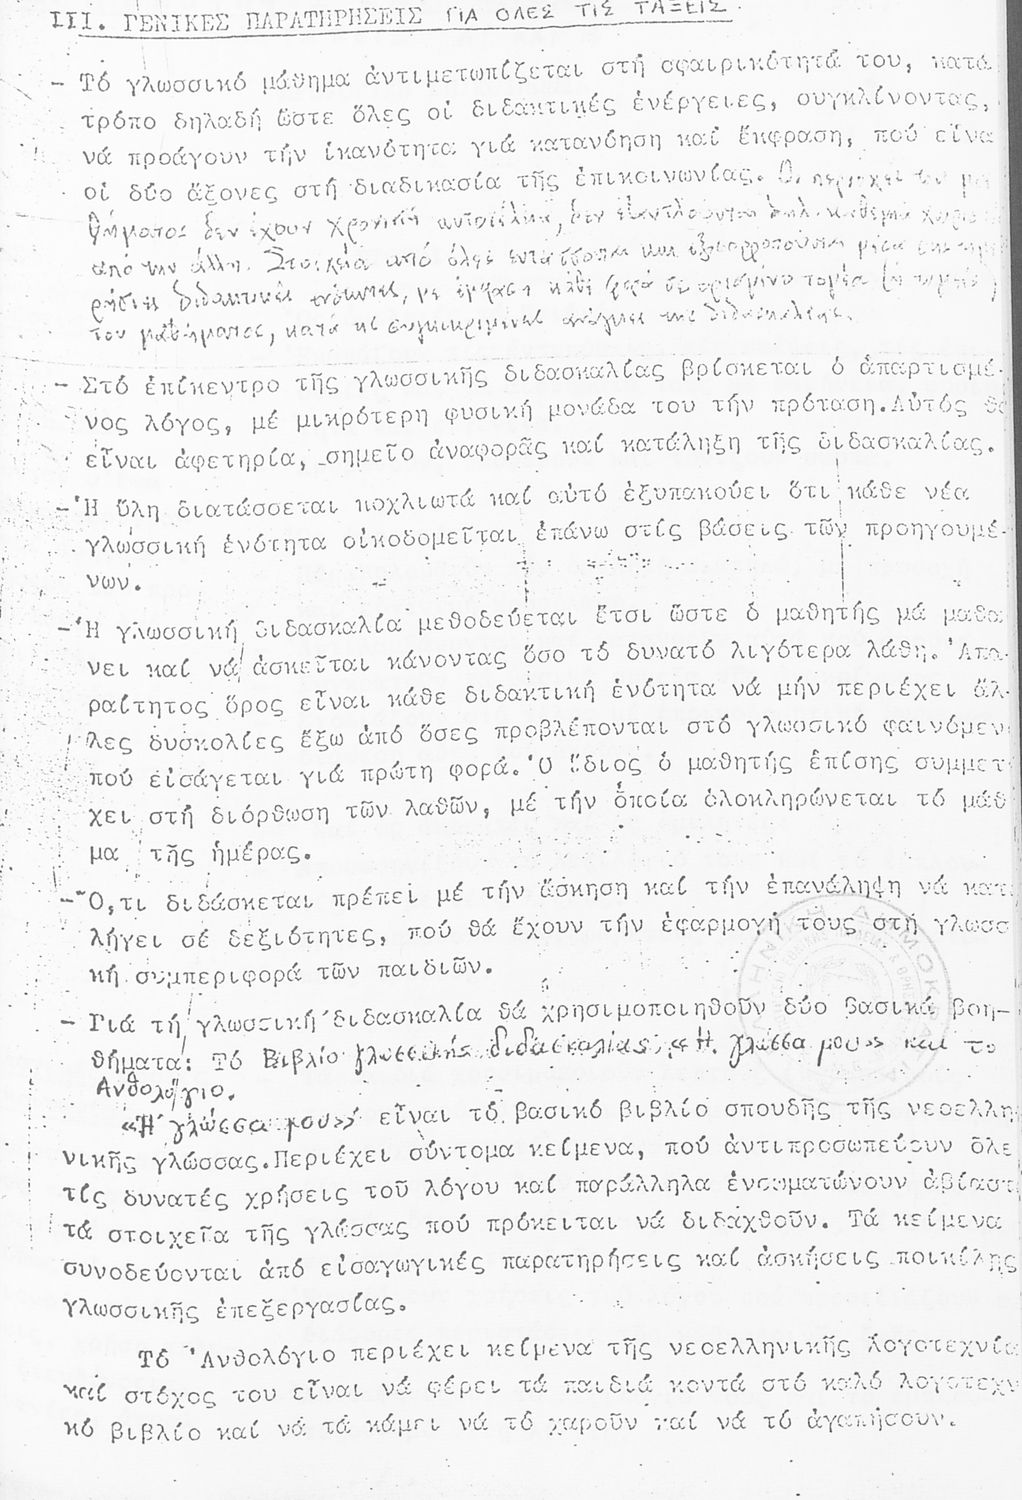 III. ΓΕΝΙΚΕΣ ΠΑΡΑΤΗΡΗΣΕΙΣ ΓΙΑ ΟΛΕΣ ΤΙΣ ΤΑΞΕΙΣ
- Τό γλωσσικό μάθημα ἀντιμετωπίζεται στή σφαιρικότητά του, κατά
τρόπο δηλαδή ὥστε ὅλες οἱ διδακτικές ἐνέργειες, συγκλίνοντας,
νά προάγουν τήν ἱκανότητα γιά κατανόηση καί ἔκφραση, πού εἶνα
οἱ δύο ἄξονες στή διαδικασία τῆς ἐπικοινωνίας. Οι περιοχές του μα
θήματος δεν έχουν χρονική αυτοτέλεια, δεν εξαντλούνται δηλ. καθεμιά χωρισ
από την άλλη. Στοιχεία από όλες εντάσσονται και εξισορροπούνται μέσα
διδακτικές ενότητες, με έμφαση κάθε φορά σε ορισμένο τομέα (ή τομείς)
του μαθήματος, κατά τις συγκεκριμένες ανάγκες της διδασκαλίας.
- Στό ἐπίκεντρο τῆς γλωσσικῆς διδασκαλίας βρίσκεται ὁ ἀπαρτισμέ-
νος λόγος, μέ μικρότερη φυσική μονάδα του τήν πρόταση. Αὐτός θά
εἶναι ἀφετηρία, σημεῖο ἀναφορᾶς καί κατάληξη τῆς διδασκαλίας.
- Ἡ ὕλη διατάσσεται κοχλιωτά καί αὐτό ἐξυπακούει ὅτι κάθε νέα
γλωσσική ἑνότητα οἰκοδομεῖται ἐπάνω στίς βάσεις τῶν προηγουμέ-
νων.
- Ἡ γλωσσική διδασκαλία μεθοδεύεται ἔτσι ὥστε ὁ μαθητής μά μαθα
νει καί νά ἀσκεῖται κάνοντας ὅσο τό δυνατό λιγότερα λάθη. Ἀπα-
ραίτητος ὅρος εἶναι κάθε διδακτική ἑνότητα νά μήν περιέχει ἄλ-
λες δυσκολίες ἔξω ἀπό ὅσες προβλέπονται στό γλωσσικό φαινόμεν
πού εἰσάγεται γιά πρώτη φορά. Ὁ ἴδιος ὁ μαθητής ἐπίσης συμμετ
χει στή διόρθωση τῶν λαθῶν, μέ τήν ὁποία ὁλοκληρώνεται τό μάθ
μα τῆς ἡμέρας.
- Ὅ,τι διδάσκεται πρέπει μέ τήν ἄσκηση καί τήν ἐπανάληψη νά κατ
λήγει σέ δεξιότητες, πού θά ἔχουν τήν ἐφαρμογή τους στή γλωσσ
κή συμπεριφορά τῶν παιδιῶν.
- Γιά τή γλωσσική διδασκαλία θά χρησιμοποιηθοῦν δύο βασικά βοη-
θήματα: Τό Βιβλίο γλωσσικής διδασκαλίας, «Η γλώσσα μου» και το
Ανθολόγιο.
«Η γλώσσα μου» εἶναι τό βασικό βιβλίο σπουδῆς τῆς νεοελλη
νικῆς γλώσσας. Περιέχει σύντομα κείμενα, πού ἀντιπροσωπεύουν ὅλε
τίς δυνατές χρήσεις τοῦ λόγου καί παράλληλα ἐνσωματώνουν ἀβίαστ
τά στοιχεῖα τῆς γλώσσας πού πρόκειται νά διδαχθοῦν. Τά κείμενα
συνοδεύονται ἀπό εἰσαγωγικές παρατηρήσεις καί ἀσκήσεις ποικίλης
γλωσσικῆς ἐπεξεργασίας.
Τό Ἀνθολόγιο περιέχει κείμενα τῆς νεοελληνικῆς λογοτεχνία
καί στόχος του εἶναι νά φέρει τά παιδιά κοντά στό καλό λογοτεχν
κό βιβλίο καί νά τά κάμει νά τό χαροῦν καί νά τό ἀγαπήσουν.